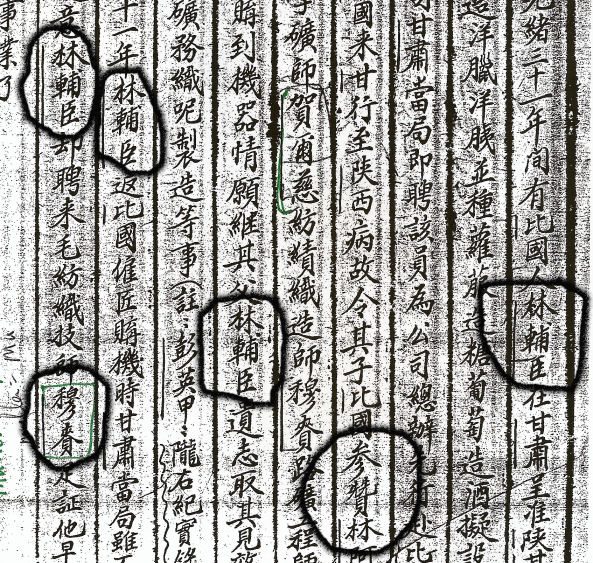 光緒二十一年間有比國人林輔臣在甘肅呈准陝甘
造洋臘洋胰並種蘿蔔造糖葡萄造酒擬設
甘肅當局即聘該員為公司總辦先行赴比
國来甘行至陕西病故令其子比國参贊林阿
礦師賀爾慈紡績織造師穆賚路礦工程師
購到機器情願継其父林輔臣遺志取其見效
礦務織呢製造等事(註:彭英甲:隴右紀實錄
十一年林輔臣返比國僱匠購機時甘肅當局雖
意林輔臣却聘来毛紡織技師穆賚足証他早
事業乃